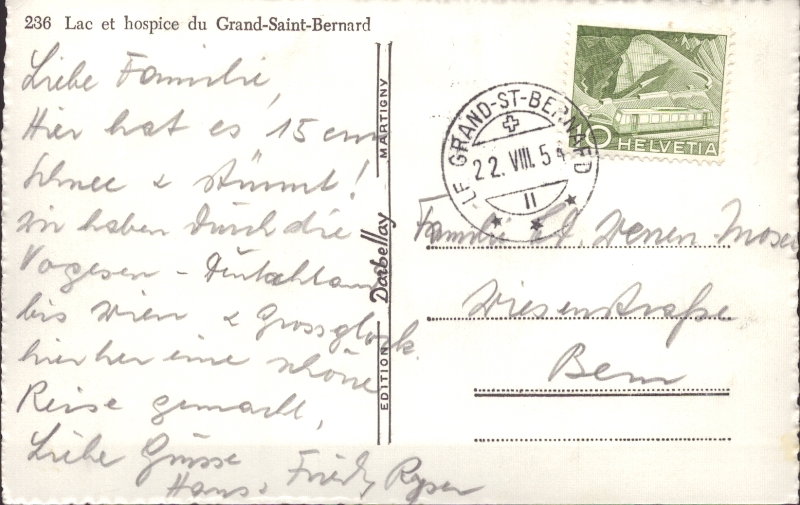 236 Lac et hospice du Grand-Saint-Bernard
Liebe Familie,
Hier hat es 15 cm
Schnee & stürmt!
Wir haben durch die
Vogesen - Deutschland
bis Wien & Grossglock.
hierher eine schöne
Reise gemacht,
Liebe Grüsse
Hans & Friedy Ryser
EDITION Darbellay MARTIGNY
LE GRAND-ST-BERNARD
22. VIII. 54
11
10 HELVETIA
Familie Wenen-Moser
Wiesenstraße
Bern